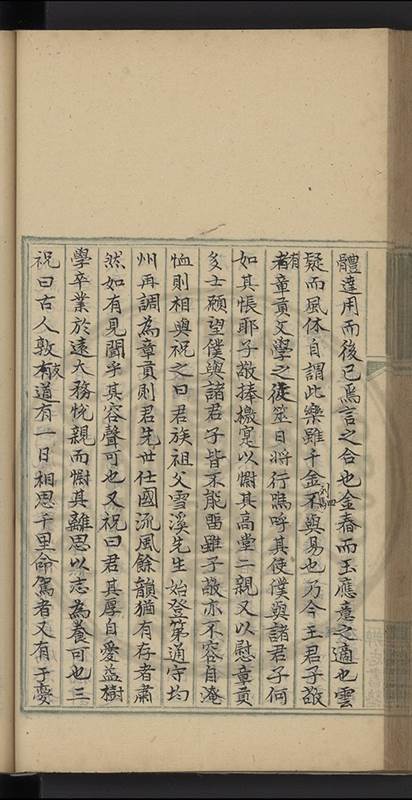 體達用而後已焉言之合也金舂而玉應意之適也雲
疑而風休自謂此樂雖千金不與易也乃今王君子敬
者有章貢文學之使筮日將行嗚呼其使僕與諸君子何
如其悵耶子敬捧檄寔以慰其高堂二親又以慰章貢
多士願望僕與諸君子皆不能畱雖子敬亦不容自淹
恤則相與祝之曰君族祖父雪溪先生始登第通守均
州再調為章貢則君先世仕國流風餘韻猶有存者肅
然如有見聞乎其容聲可也又祝曰君其厚自愛益樹
學卒業於遠大務悅親而慰其離思以志為養可也三
祝曰古人敦友道有一日相思千里命駕者又有于夔